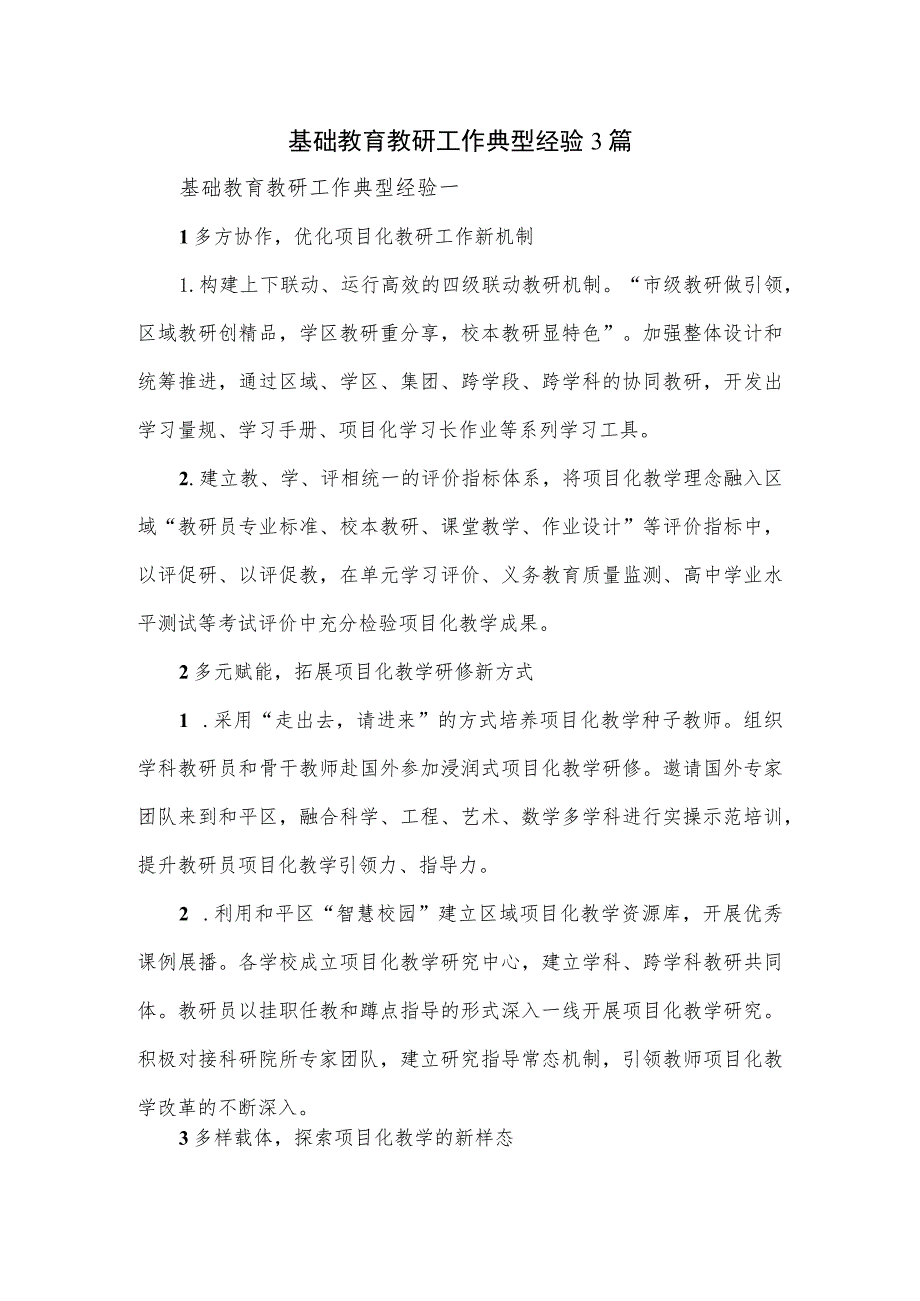 基础教育教研工作典型经验3篇
基础教育教研工作典型经验一
1多方协作，优化项目化教研工作新机制
1.构建上下联动、运行高效的四级联动教研机制。“市级教研做引领，
区域教研创精品，学区教研重分享，校本教研显特色”。加强整体设计和
统筹推进，通过区域、学区、集团、跨学段、跨学科的协同教研，开发出
学习量规、学习手册、项目化学习长作业等系列学习工具。
2.建立教、学、评相统一的评价指标体系，将项目化教学理念融入区
域“教研员专业标准、校本教研、课堂教学、作业设计”等评价指标中，
以评促研、以评促教，在单元学习评价、义务教育质量监测、高中学业水
平测试等考试评价中充分检验项目化教学成果。
2多元赋能，拓展项目化教学研修新方式
1 .采用“走出去，请进来”的方式培养项目化教学种子教师。组织
学科教研员和骨干教师赴国外参加浸润式项目化教学研修。邀请国外专家
团队来到和平区，融合科学、工程、艺术、数学多学科进行实操示范培训，
提升教研员项目化教学引领力、指导力。
2 .利用和平区“智慧校园”建立区域项目化教学资源库，开展优秀
课例展播。各学校成立项目化教学研究中心，建立学科、跨学科教研共同
体。教研员以挂职任教和蹲点指导的形式深入一线开展项目化教学研究。
积极对接科研院所专家团队，建立研究指导常态机制，引领教师项目化教
学改革的不断深入。
3多样载体，探索项目化教学的新样态